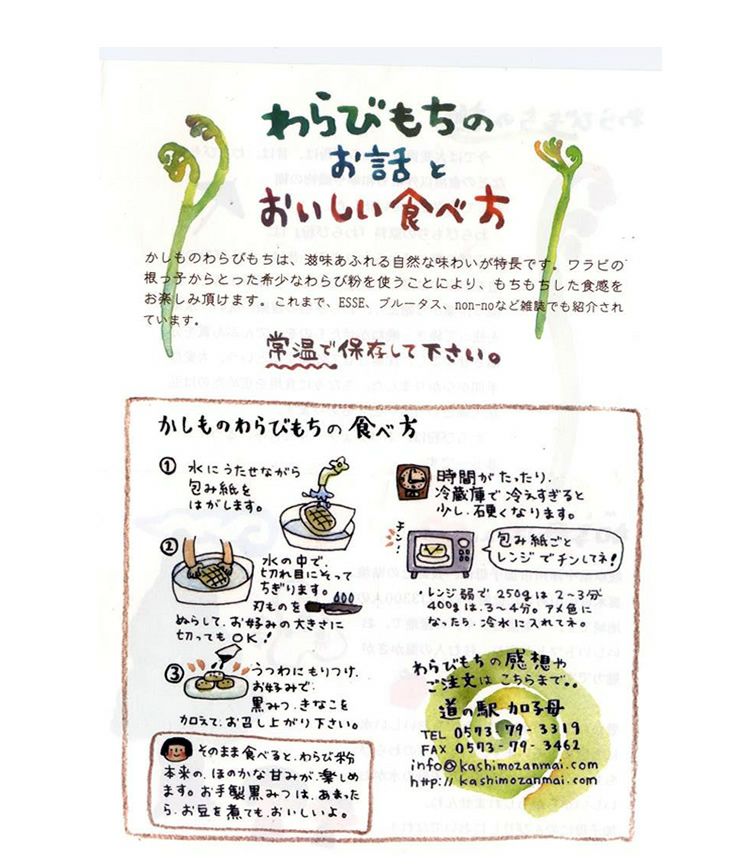 わらびもちの
お話と
おいしい食べ方
かしものわらびもちは、滋味あふれる自然な味わいが特長です。ワラビの
根っ子からとった希少なわらび粉を使うことにより、もちもちした食感を
お楽しみ頂けます。これまで、ESSE、ブルータス、non-noなど雑誌でも紹介され
ています。
常温で保存して下さい。
かしものわらびもちの食べ方
① 水にうたせながら
包み紙を
はがします。
② 水の中で、
切れ目にそって
ちぎります。
刃ものを
ぬらして、お好みの大きさに
切ってもOK!
③ うつわにもりつけ、
お好みで
黒みつ、きなこを
加えて、お召し上がり下さい。
そのまま食べると、わらび粉
本来の、ほのかな甘みが、楽しめ
ます。お手製黒みつは、あまった
ら、お豆を煮ても、おいしいよ。
時間がたったり、
冷蔵庫で冷えすぎると
少し、硬くなります。
チン!
包み紙ごと
レンジでチンしてネ!
・レンジ弱で250gは2~3分
400gは、3~4分。アメ色に
なったら、冷水に入れてネ。
わらびもちの感想や
ご注文はこちらまで。。
道の駅 加子母
TEL 0573-79-3319
FAX 0573-79-3462
info@kashimozanmai.com
http://kashimozanmai.com